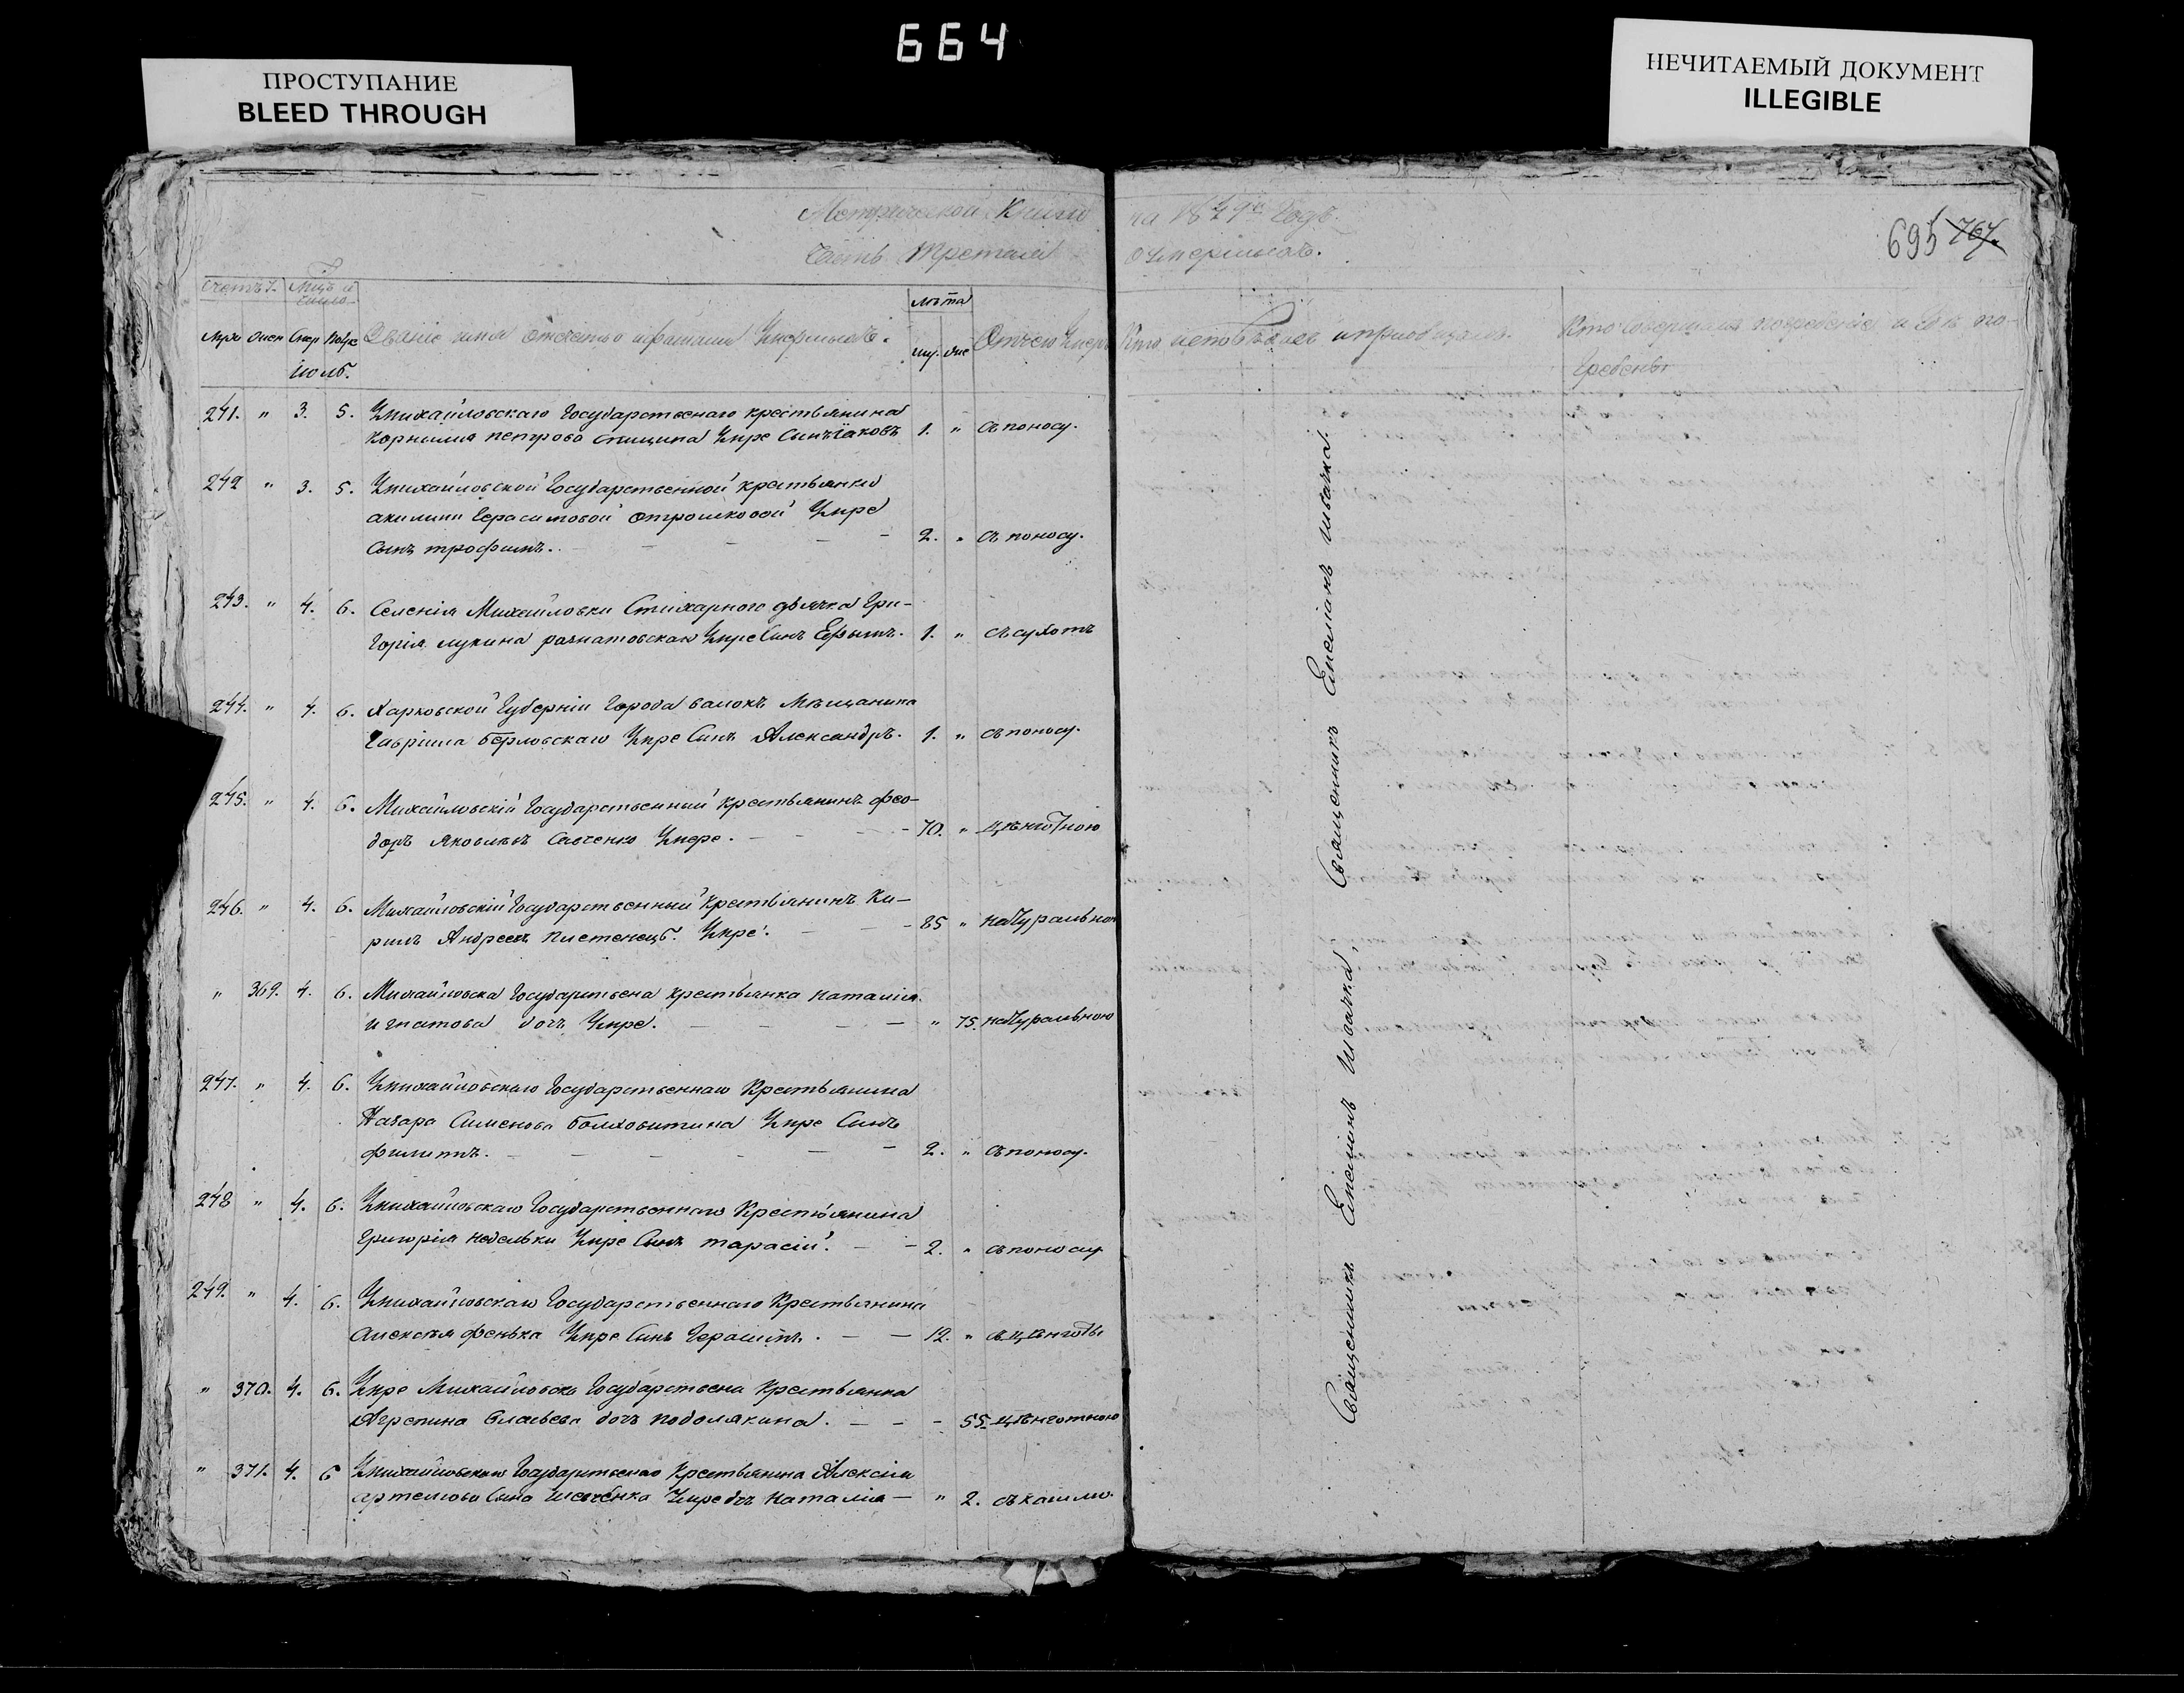 664
ПРОСТУПАНИЕ
BLEED THROUGH
НЕЧИТАЕМЫЙ ДОКУМЕНТ
ILLEGIBLE
Метрической Книги на 1849й Годъ.
Часть Третья о умершихъ.
695 767.
Счетъ У. Мѣцъ и число
лѣта
Муж Жен Смер Погре Званіе имя отчество и фамилія Умершихъ. му. же Отчего Умер Кто исповѣдалъ и пріобщалъ. Кто совершалъ погребеніе и гдѣ по-
гребены
Іюль.
241. " 3. 5. Умихайловскаго Государственаго крестьянина
Корнилія петрова Спицина Умре Сынъ Іаковъ 1. " Съ поносу.
242 " 3. 5. Умихайловской Государственной крестьянки
акилини Герасимовой Отрошковой Умре
Сынъ трофимъ. 2. " Съ поносу.
243. " 4. 6. Селенія Михайловки Стихарного дьячка Гри-
горія лукина Умре Синъ Ефимъ. 1. " съ сухотъ
244. " 4. 6. Харковской Губерніи Города валокъ Мѣщанина
Гавріила Берловскаго Умре Синъ Александръ. 1. " съ поносу.
245. " 4. 6. Михайловскій Государственний крестьянинъ фео-
доръ Яковлевъ Савченко Умере. 70. " Цѣнготною
246. " 4. 6. Михайловскій Государственный Крестьянинъ Ки-
рилъ Андреевъ Плетенецъ. Умре. 85 " натуральною
" 369. 4. 6. Михайловска Государствена крестьянка наталія
игнатова дочъ Умре. " 75. натуральною
247. " 4. 6. Умихайловскаго Государственнаго Крестьянина
Назара Сименова Болховитина Умре Синъ
филиппъ. 2. " съ поносу.
248 " 4. 6. Умихайловскаго Государственнаго Крестьянина
Григорія недельки Умре Сынъ тарасій. 2. " съ поносу
249. " 4. 6. Умихайловскаго Государственнаго Крестьянина
Алексѣя фенька Умре Синъ Герасимъ. 12. " съ цѣнготы
" 370. 4. 6. Умре Михайловска Государствена Крестьянка
Агрепина дочъ подолякина. 55 цѣнготною
" 371. 4. 6 Умихайловскаго Государственаго Крестьянина Алексія
артемова Сина Шевченка Умре дочъ Наталія " 2. съ кашлю.
Священникъ Емеліянъ Швачка, Священникъ Емеліянъ Швачка.